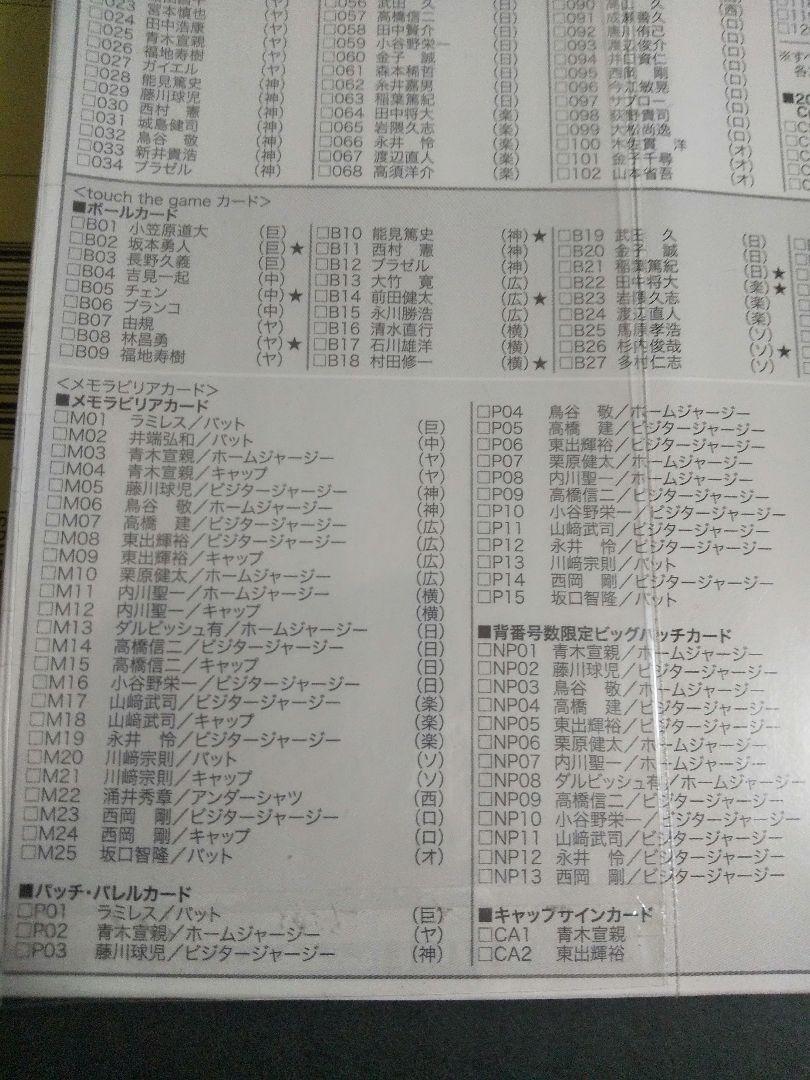 □023 宮本慎也 (ヤ)
□024 田中浩康 (ヤ)
□025 青木宣親 (ヤ)
□026 福地寿樹 (ヤ)
□027 ガイエル (ヤ)
□028 能見篤史 (神)
□029 藤川球児 (神)
□030 西村 憲 (神)
□031 城島健司 (神)
□032 鳥谷 敬 (神)
□033 新井貴浩 (神)
□034 ブラゼル (神)
□056 武田 久
□057 高橋信二 (日)
□058 田中賢介 (日)
□059 小谷野栄一 (日)
□060 金子 誠 (日)
□061 森本稀哲 (日)
□062 糸井嘉男 (日)
□063 稲葉篤紀 (日)
□064 田中将大 (楽)
□065 岩隈久志 (楽)
□066 永井 怜 (楽)
□067 渡辺直人 (楽)
□068 高須洋介 (楽)
□090 高山 久 (西)
□091 成瀬善久 (ロ)
□092 唐川侑己 (ロ)
□093 渡辺俊介 (ロ)
□094 井口資仁 (ロ)
□095 西岡 剛 (ロ)
□096 今江敏晃 (ロ)
□097 サブロー (ロ)
□098 荻野貴司 (ロ)
□099 大松尚逸 (ロ)
□100 木佐貫 洋 (オ)
□101 金子千尋 (オ)
□102 山本省吾 (オ)
※すべ
各
■20
<touch the game カード>
■ボールカード
□B01 小笠原道大 (巨)
□B02 坂本勇人 (巨)★
□B03 長野久義 (巨)
□B04 吉見一起 (中)
□B05 チェン (中)★
□B06 ブランコ (中)
□B07 由規 (ヤ)
□B08 林昌勇 (ヤ)★
□B09 福地寿樹 (ヤ)
□B10 能見篤史 (神)★
□B11 西村 憲 (神)
□B12 ブラゼル (神)
□B13 大竹 寛 (広)
□B14 前田健太 (広)★
□B15 永川勝浩 (広)
□B16 清水直行 (横)
□B17 石川雄洋 (横)
□B18 村田修一 (横)★
□B19 武田 久 (日)
□B20 金子 誠 (日)
□B21 稲葉篤紀 (日)★
□B22 田中将大 (楽)★
□B23 岩隈久志 (楽)
□B24 渡辺直人 (楽)
□B25 馬原孝浩 (ソ)
□B26 杉内俊哉 (ソ)★
□B27 多村仁志 (ソ)
<メモラビリアカード>
■メモラビリアカード
□M01 ラミレス/バット (巨)
□M02 井端弘和/バット (中)
□M03 青木宣親/ホームジャージー (ヤ)
□M04 青木宣親/キャップ (ヤ)
□M05 藤川球児/ビジタージャージー (神)
□M06 鳥谷 敬/ホームジャージー (神)
□M07 高橋 建/ビジタージャージー (広)
□M08 東出輝裕/ビジタージャージー (広)
□M09 東出輝裕/キャップ (広)
□M10 栗原健太/ホームジャージー (広)
□M11 内川聖一/ホームジャージー (横)
□M12 内川聖一/キャップ (横)
□M13 ダルビッシュ有/ホームジャージー (日)
□M14 高橋信二/ビジタージャージー (日)
□M15 高橋信二/キャップ (日)
□M16 小谷野栄一/ビジタージャージー (日)
□M17 山﨑武司/ビジタージャージー (楽)
□M18 山﨑武司/キャップ (楽)
□M19 永井 怜/ビジタージャージー (楽)
□M20 川﨑宗則/バット (ソ)
□M21 川﨑宗則/キャップ (ソ)
□M22 涌井秀章/アンダーシャツ (西)
□M23 西岡 剛/ビジタージャージー (ロ)
□M24 西岡 剛/キャップ (ロ)
□M25 坂口智隆/バット (オ)
■パッチ・バレルカード
□P01 ラミレス/バット (巨)
□P02 青木宣親/ホームジャージー (ヤ)
□P03 藤川球児/ビジタージャージー (神)
□P04 鳥谷 敬/ホームジャージー
□P05 高橋 建/ビジタージャージー
□P06 東出輝裕/ビジタージャージー
□P07 栗原健太/ホームジャージー
□P08 内川聖一/ホームジャージー
□P09 高橋信二/ビジタージャージー
□P10 小谷野栄一/ビジタージャージー
□P11 山﨑武司/ビジタージャージー
□P12 永井 怜/ビジタージャージー
□P13 川﨑宗則/バット
□P14 西岡 剛/ビジタージャージー
□P15 坂口智隆/バット
■背番号数限定ビッグパッチカード
□NP01 青木宣親/ホームジャージー
□NP02 藤川球児/ビジタージャージー
□NP03 鳥谷 敬/ホームジャージー
□NP04 高橋 建/ビジタージャージー
□NP05 東出輝裕/ビジタージャージー
□NP06 栗原健太/ホームジャージー
□NP07 内川聖一/ホームジャージー
□NP08 ダルビッシュ有/ホームジャージー
□NP09 高橋信二/ビジタージャージー
□NP10 小谷野栄一/ビジタージャージー
□NP11 山﨑武司/ビジタージャージー
□NP12 永井 怜/ビジタージャージー
□NP13 西岡 剛/ビジタージャージー
■キャップサインカード
□CA1 青木宣親
□CA2 東出輝裕